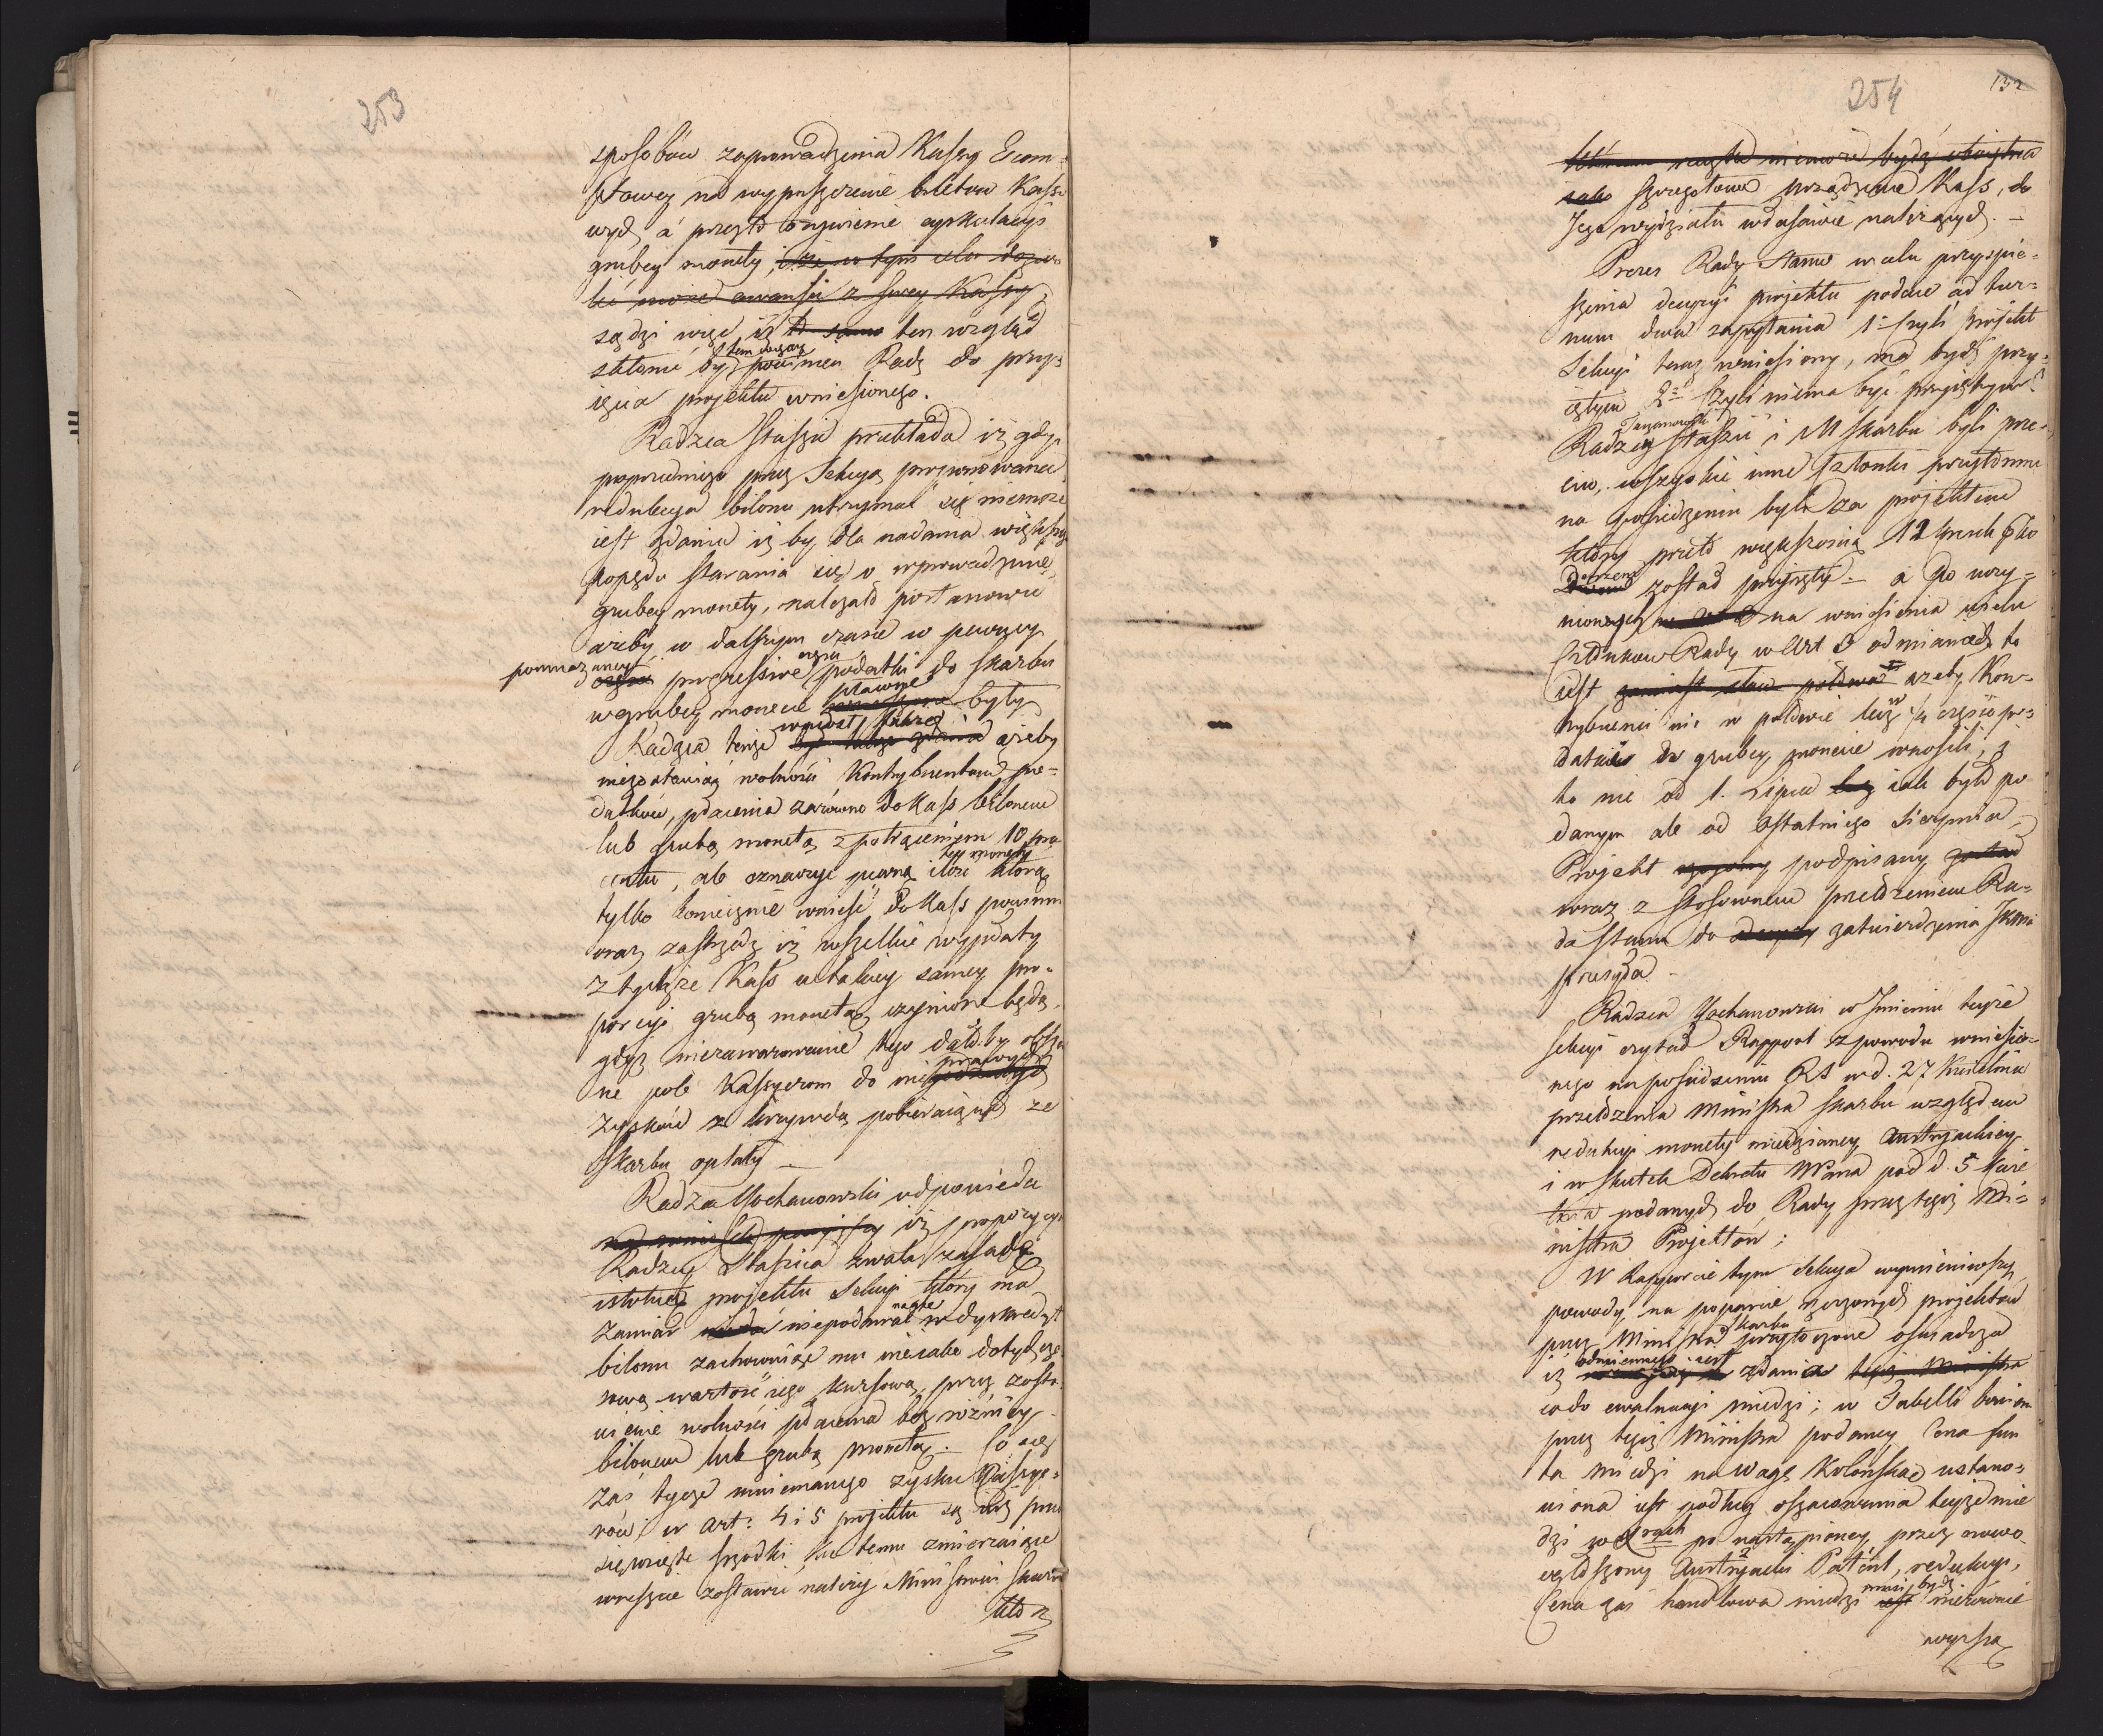 253
sposobów zaprowadzenia Kassy Escom-
ptowey na wypuszczenie biletow Kasso
wych, a przez to ożywienie cyrkulacyi
grubey monety, i że w tym celu
może awansu z swey Kassy,
sądzi więc iż to samo ten wzgląd
skłonić by tem więcey powinien Radę do przy-
ięcia projektu wniesionego.
Radzca Staszic przekłada iż gdy
poprzedniego przez Sekcyą proponowana
redukcya bilonu utrzymać się niemoże
iest zdania iż by dla nadania większego
popędu starania się o wprowadzenie
grubey monety, należało postanowić
ażeby w dalszym czasie w pewney
pomnażaney części progressive podatki do skarbu
w grubey monecie płacone były
Radzca tenże wniósł także ażeby
niezostawiać wolności Kontrybuentom po-
datków, płacenia zarówno do Kass bilonem
lub grubą monetą z potrąceniem 10 pro
centu, ale oznaczyć pewną ilość tey monety którą
tylko koniecznie wnieść do Kass powinni
oraz zastrzedz iż wszelkie wypłaty
z tychże Kass w takiey samey pro-
porcyi grubą monetą czynione będą,
gdyż niezawarowanie tego dało by obszer
ne pole Kassyerom do nieprawych
zysków z krzywdą pobieraiących ze
Skarbu opłaty —
Radzca Kochanowski odpowiada
iż propozycya
Radzcy Staszica zwala zasadę
istotną projektu Sekcyi który ma
zamiar niepodawać nagle w dyskredyt
bilonu zachowuiąc mu nieiako dotychcza
sową wartość iego kursową, przez zosta
wienie wolności płacenia bez różnicy
bilonem lub grubą monetą. Co się
zaś tycze mniemanego zysku Kassye-
rów, w art: 4 i 5 projektu są iuż przed
sięwzięte środki, ku temu zmierzaiące
wreszcie zostawić należy Ministrowi Skarbu
które
254
132
niemoże bydź obojętna
iako szczegółowe urządzenie Kass, do
Jego wydziału właściwie należących. —
Prezes Rady Stanu w celu przyspie-
szenia decyzyi projektu podaie ad tur-
num dwa zapytania 1° Czyli projekt
Sekcyi teraz wniesiony, ma bydź przy-
iętym, 2° Czyli niema być przyiętym?
Radzcy Staszic i M Skarbu byli prze-
ciw, wszyskie inne Członki przytomne
na posiedzeniu byli za projektem
który przeto większością 12 przeciw
został przyięty — a po uczy-
nionych na wniesienia wielu
Członków Rady w Art 3 odmianach to
iest zamiast słów połowa ażeby Kon-
trybuenci nie w połowie lecz w ¼ części po-
datków w grubey monecie wnosili, i
to nie od 1. Lipca iak było po
danym ale od ostatniego Sierpnia,
Projekt podpisany
wraz z stosownem przełożeniem Ra-
da Stanu do zatwierdzenia JKMci
przesyła —
Radzca Kochanowski w Imieniu teyże
Sekcyi czytał Rapport z powodu wniesio-
nego na posiedzeniu RS w d. 27 Kwietnia
przełożenia Ministra Skarbu względem
redukcyi monety miedzianey Austryackiey
i w skutek Dekretu NPana pod d. 5 Kwie
tnia podanych do Rady przez tegoż Mi-
nistra Projektów;
W Rapporcie tym Sekcya wymieniwszy
powody na poparcie rzeczonych projektów
przez Ministra Skarbu przytoczone oświadcza
iż odmiennego iest zdania tegoż Ministra
co do ewaluacyi miedzi; w Tabelli bowiem
przez tegoż Ministra podaney Cena fun
ta miedzi na wagę Kolońską ustano-
wiona iest podług oszacowania teyże mie
dzi po nastąpioney przez nowo
ogłoszony Austryacki Patent, redukcyi,
Cena zaś handlowa miedzi musi bydź nierównie
wyższa